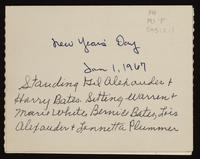 New Years Day
Jan 1, 1967
Standing Gil Alexander &
Harry Bates. Sitting Warren &
Marie White, Bernice Bates, Lois
Alexander & Jennetta Plummer